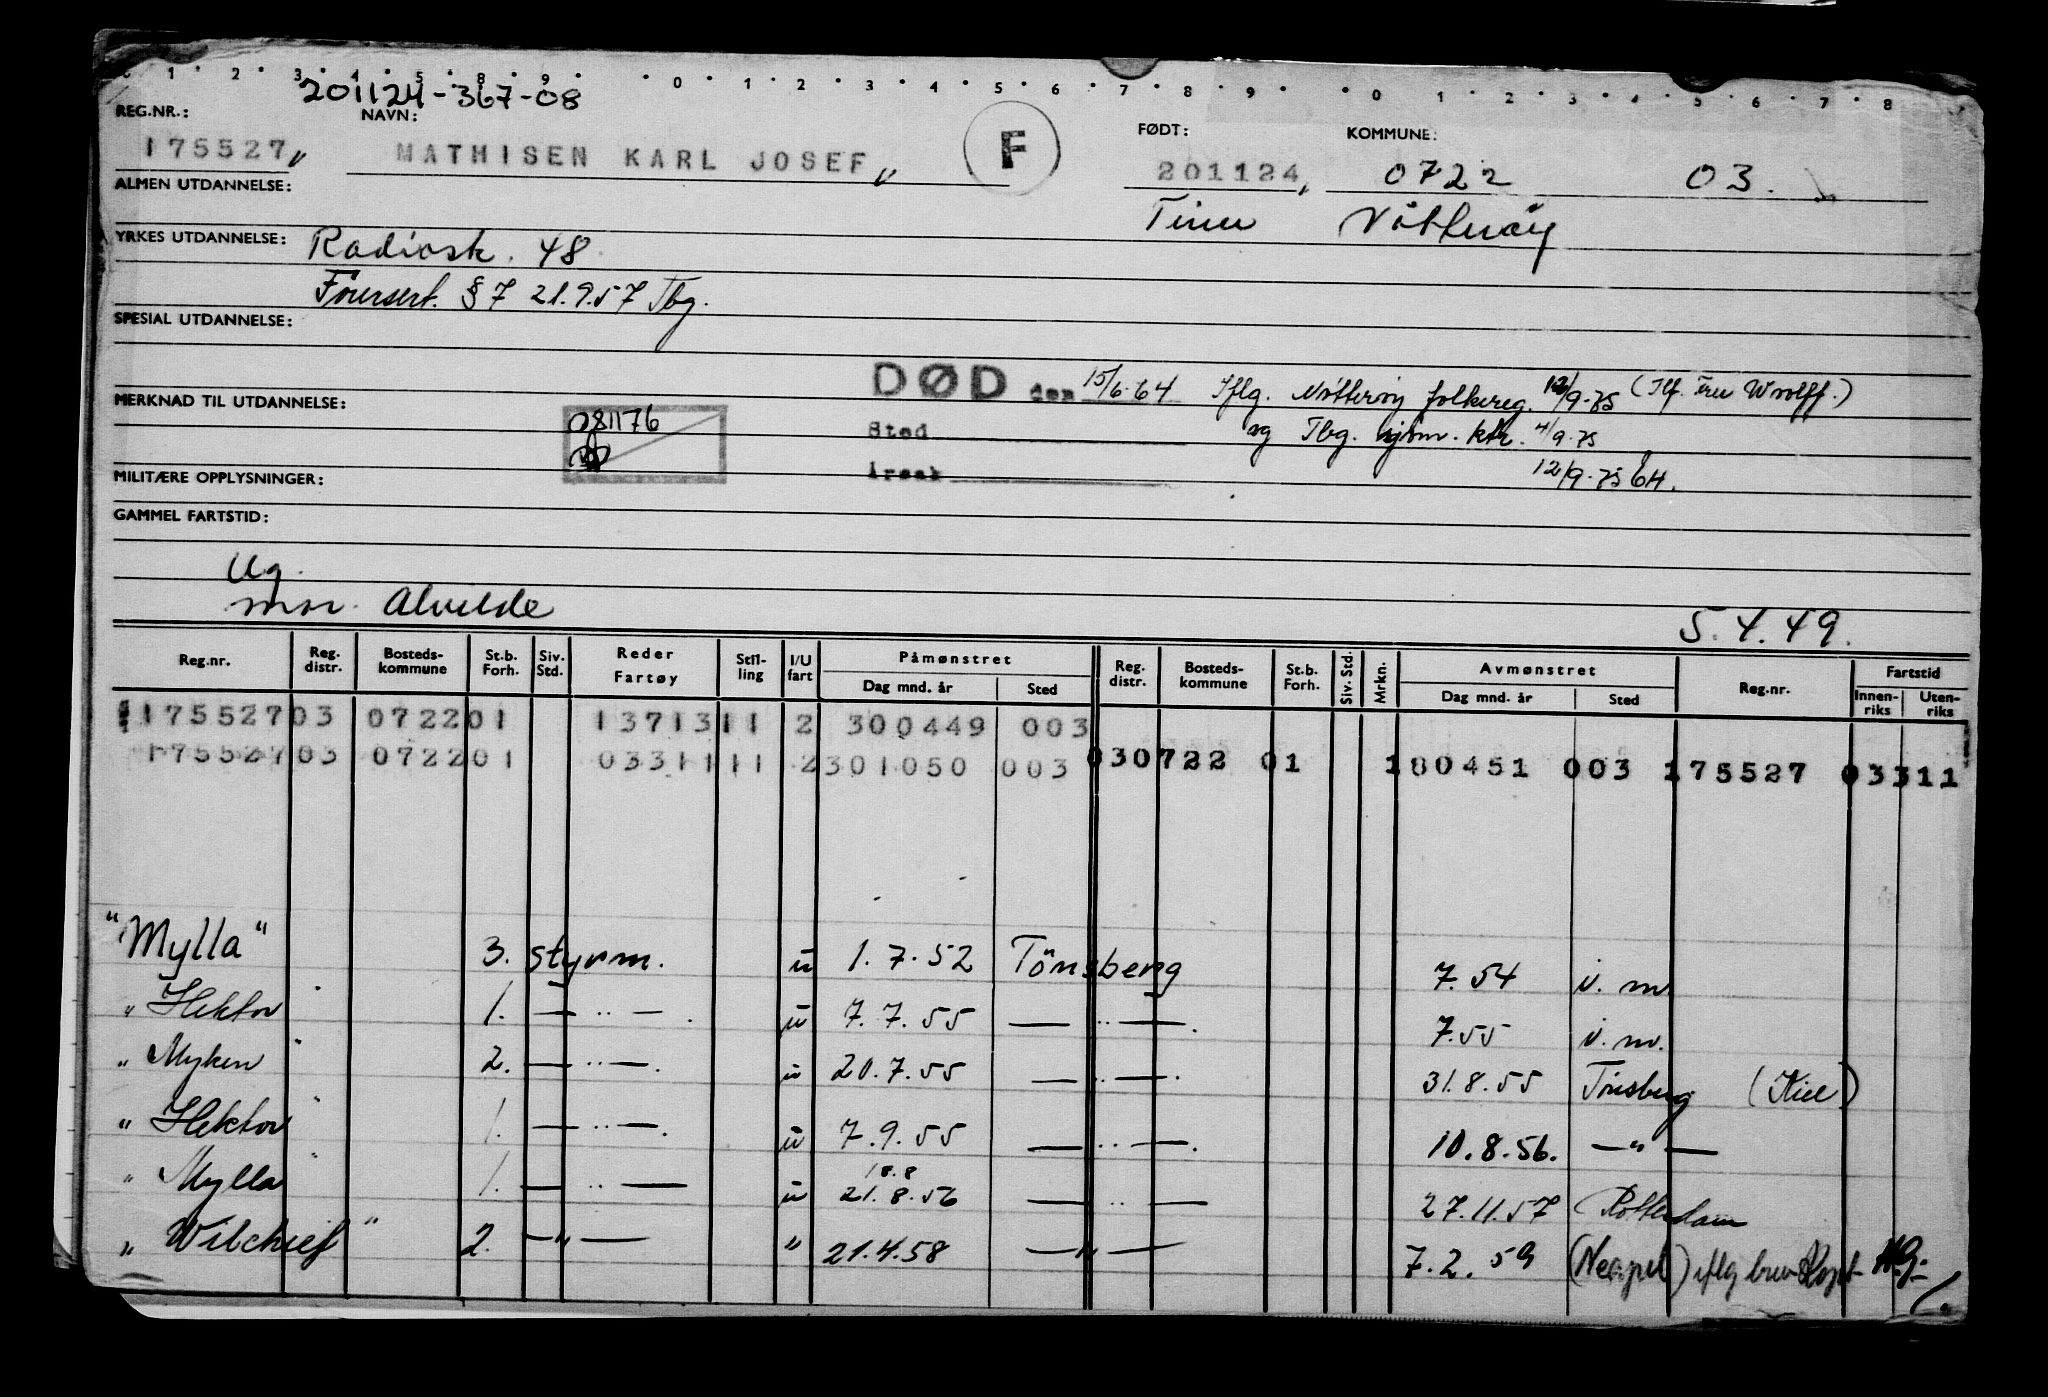 1 2 3 4 5 8 9 0 1 2 3 4 5 6 7 8 9 0 1 2 3 4 5 6 7 8
201124-367-08
REG.NR.: NAVN: FØDT: KOMMUNE:
175527 MATHISEN KARL JOSEF F 201124 0722 03.
ALMEN UTDANNELSE:
Nøtterøy
YRKES UTDANNELSE: Radiosk. 48
§ 7 21.9.57 Tbg.
SPESIAL UTDANNELSE:
DØD den 15/6-64 Iflg. Nøtterøy folkereg. 12/9-75 (Tlf. Fru Woolff.)
MERKNAD TIL UTDANNELSE:
081176
Sted og Tbg. sjøm. ktr. 4/9-75
Årsak 12/9-75
MILITÆRE OPPLYSNINGER:
GAMMEL FARTSTID:
Ug.
mor. Alvilde 5.4.49.
Reg.nr. Reg. distr. Bosteds-kommune St.b. Forh. Siv. Std. Reder Fartøy Stil-ling I/U fart Påmønstret Dag mnd. år Sted Reg. distr. Bosteds-kommune St.b. Forh. Siv. Std. Mrkn. Avmønstret Dag mnd. år Sted Reg.nr. Fartstid Innen-riks Uten-riks
175527 03 0722 01 13713 11 2 300449 003
175527 03 0722 01 03311 11 2 301050 003 03 0722 01 180451 003 175527 03311
"Mylla" 3. styrm. u 1.7.52 Tönsberg 7.54 i. m.
"Hektor" 1. — " — . u 7.7.55 — " — . 7.55 i. m.
"Myken" 2. — " — . u 20.7.55 — " — . 31.8.55 Tönsberg (Kiel)
"Hektor" 1. — " — . u 7.9.55 — " — . 10.8.56. — " —
"Mylla" 1. — " — u 21.8.56 — " — 27.11.57 Rotterdam
"Wilchief" 2. — " — " 21.4.58 — " — 7.2.59 (Neapel) iflg brev